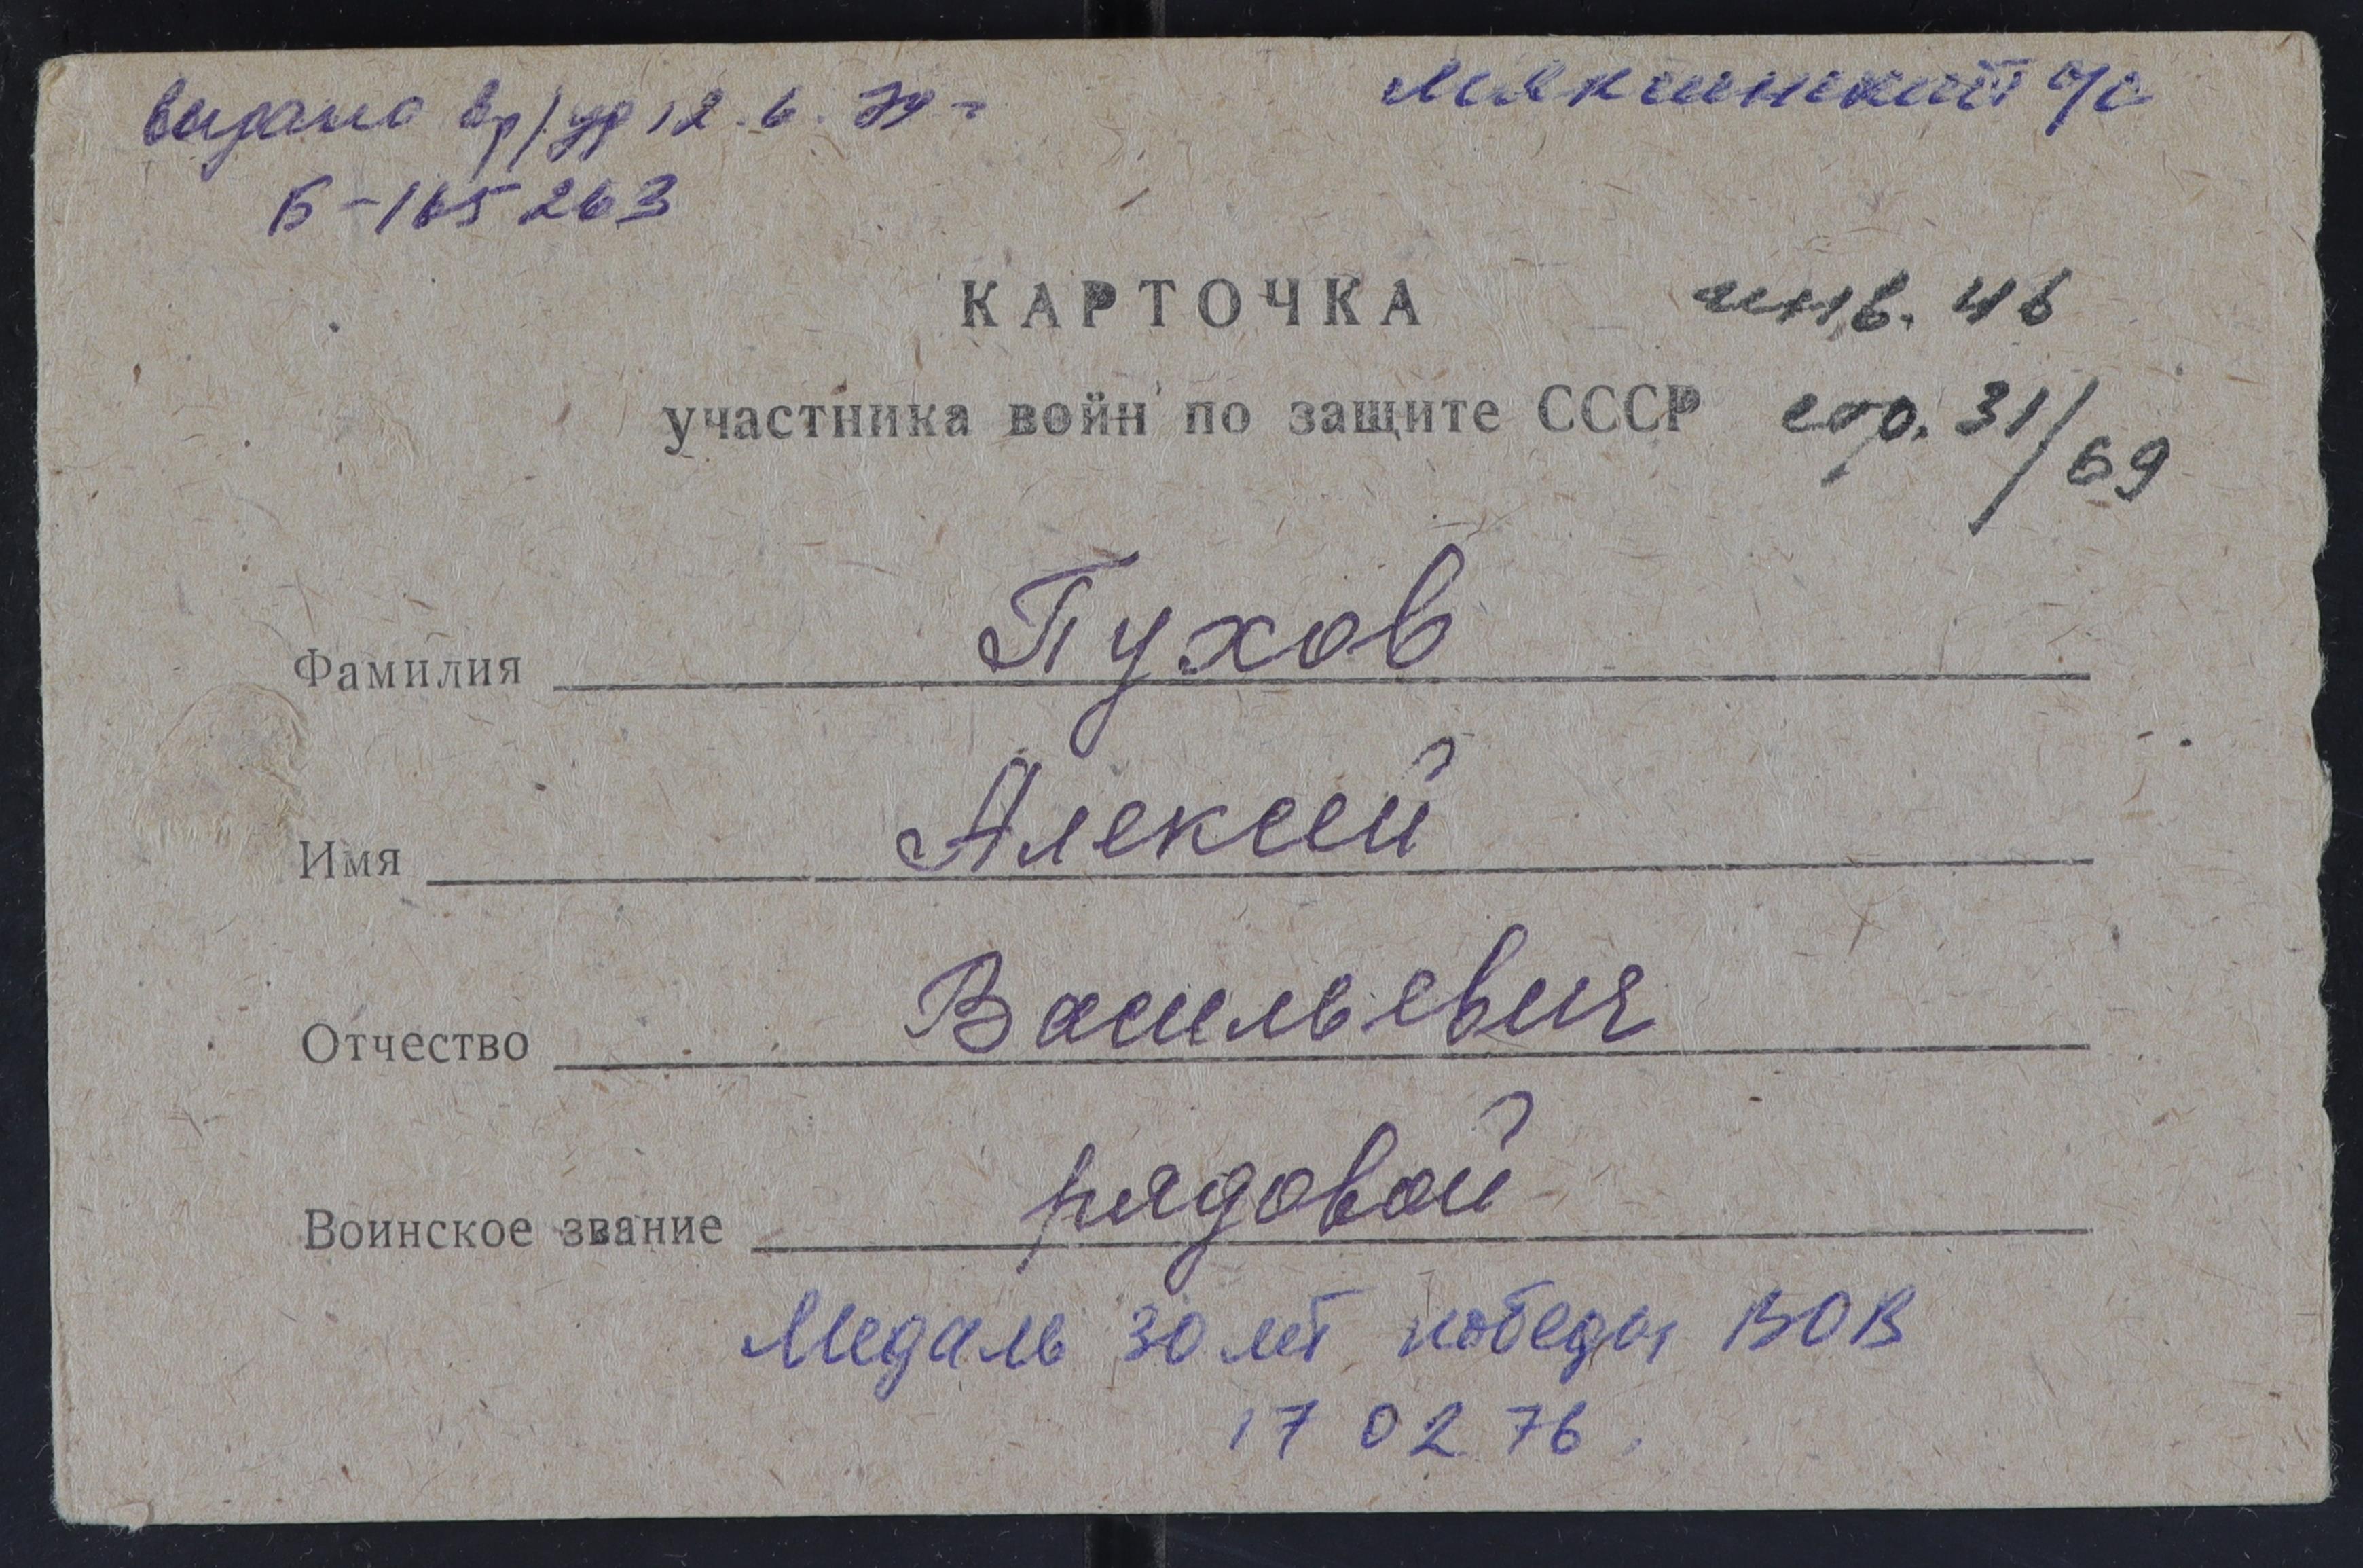 выдано вр/уд 12.6.79 г
Мякшинский с/с
Б-165263
КАРТОЧКА
инв. 46
участника войн по защите СССР
стр. 31/69
Фамилия Пухов
Имя Алексей
Отчество Васильевич
Воинское звание рядовой
Медаль 30 лет победы ВОВ
17 02 76.